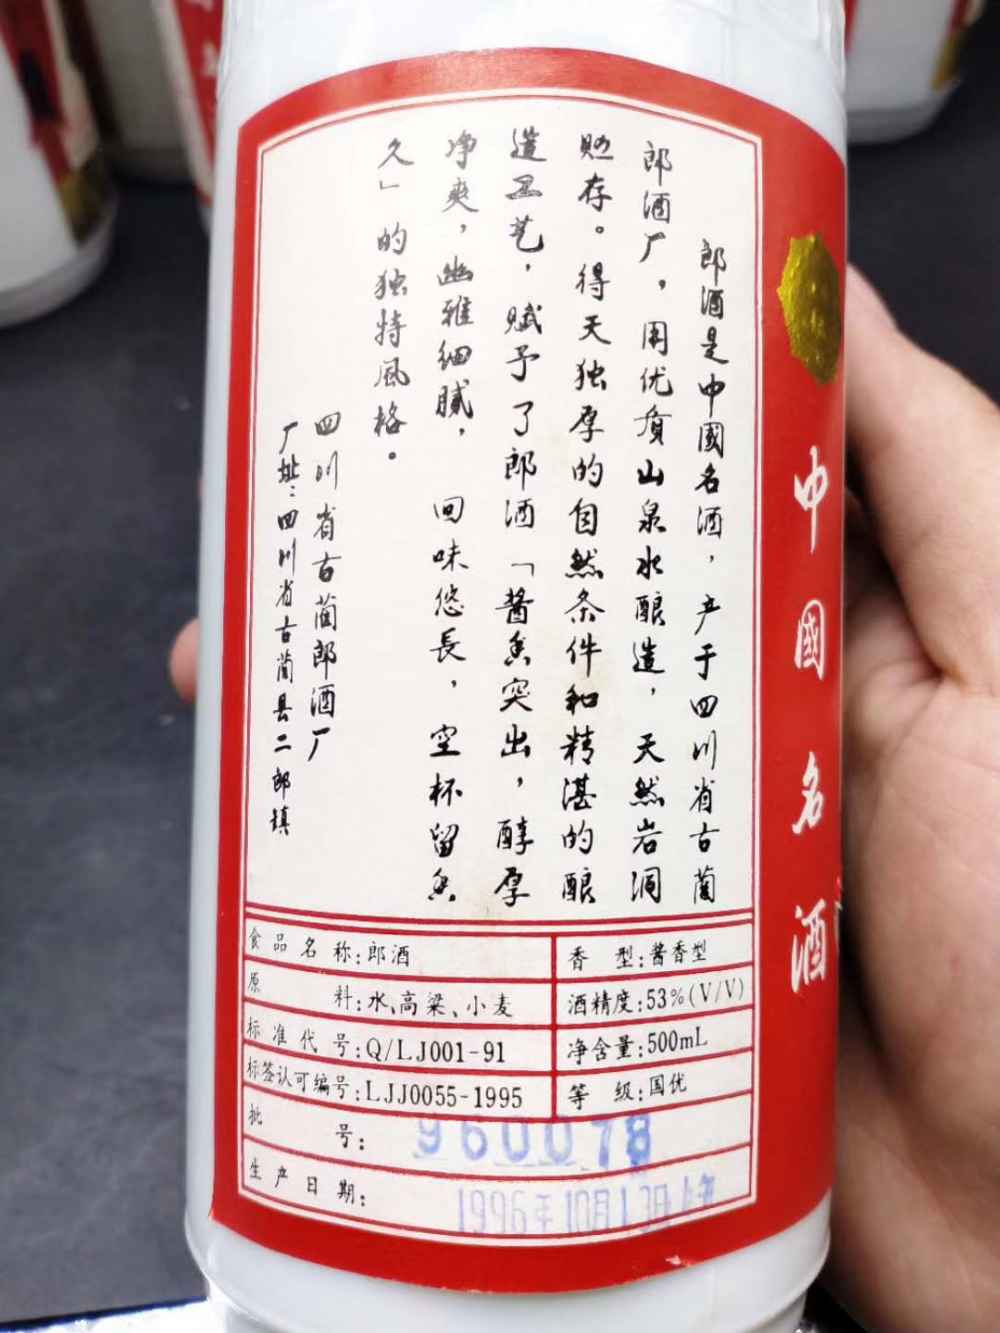 郎酒是中國名酒，产于四川省古蔺
郎酒厂，用优质山泉水酿造，天然岩洞
贮存。得天独厚的自然条件和精湛的酿
造工艺，赋予了郎酒「酱香突出，醇厚
净爽，幽雅细腻，回味悠長，空杯留香
久」的独特風格。
四川省古蔺郎酒厂
厂址：四川省古蔺县二郎镇
中國名酒
食品名称:郎酒
香型:酱香型
原料:水、高粱、小麦
酒精度:53%(V/V)
标准代号:Q/LJ001-91
净含量:500mL
标签认可编号:LJJ0055-1995
等级:国优
批号: 960078
生产日期: 1996年10月13日